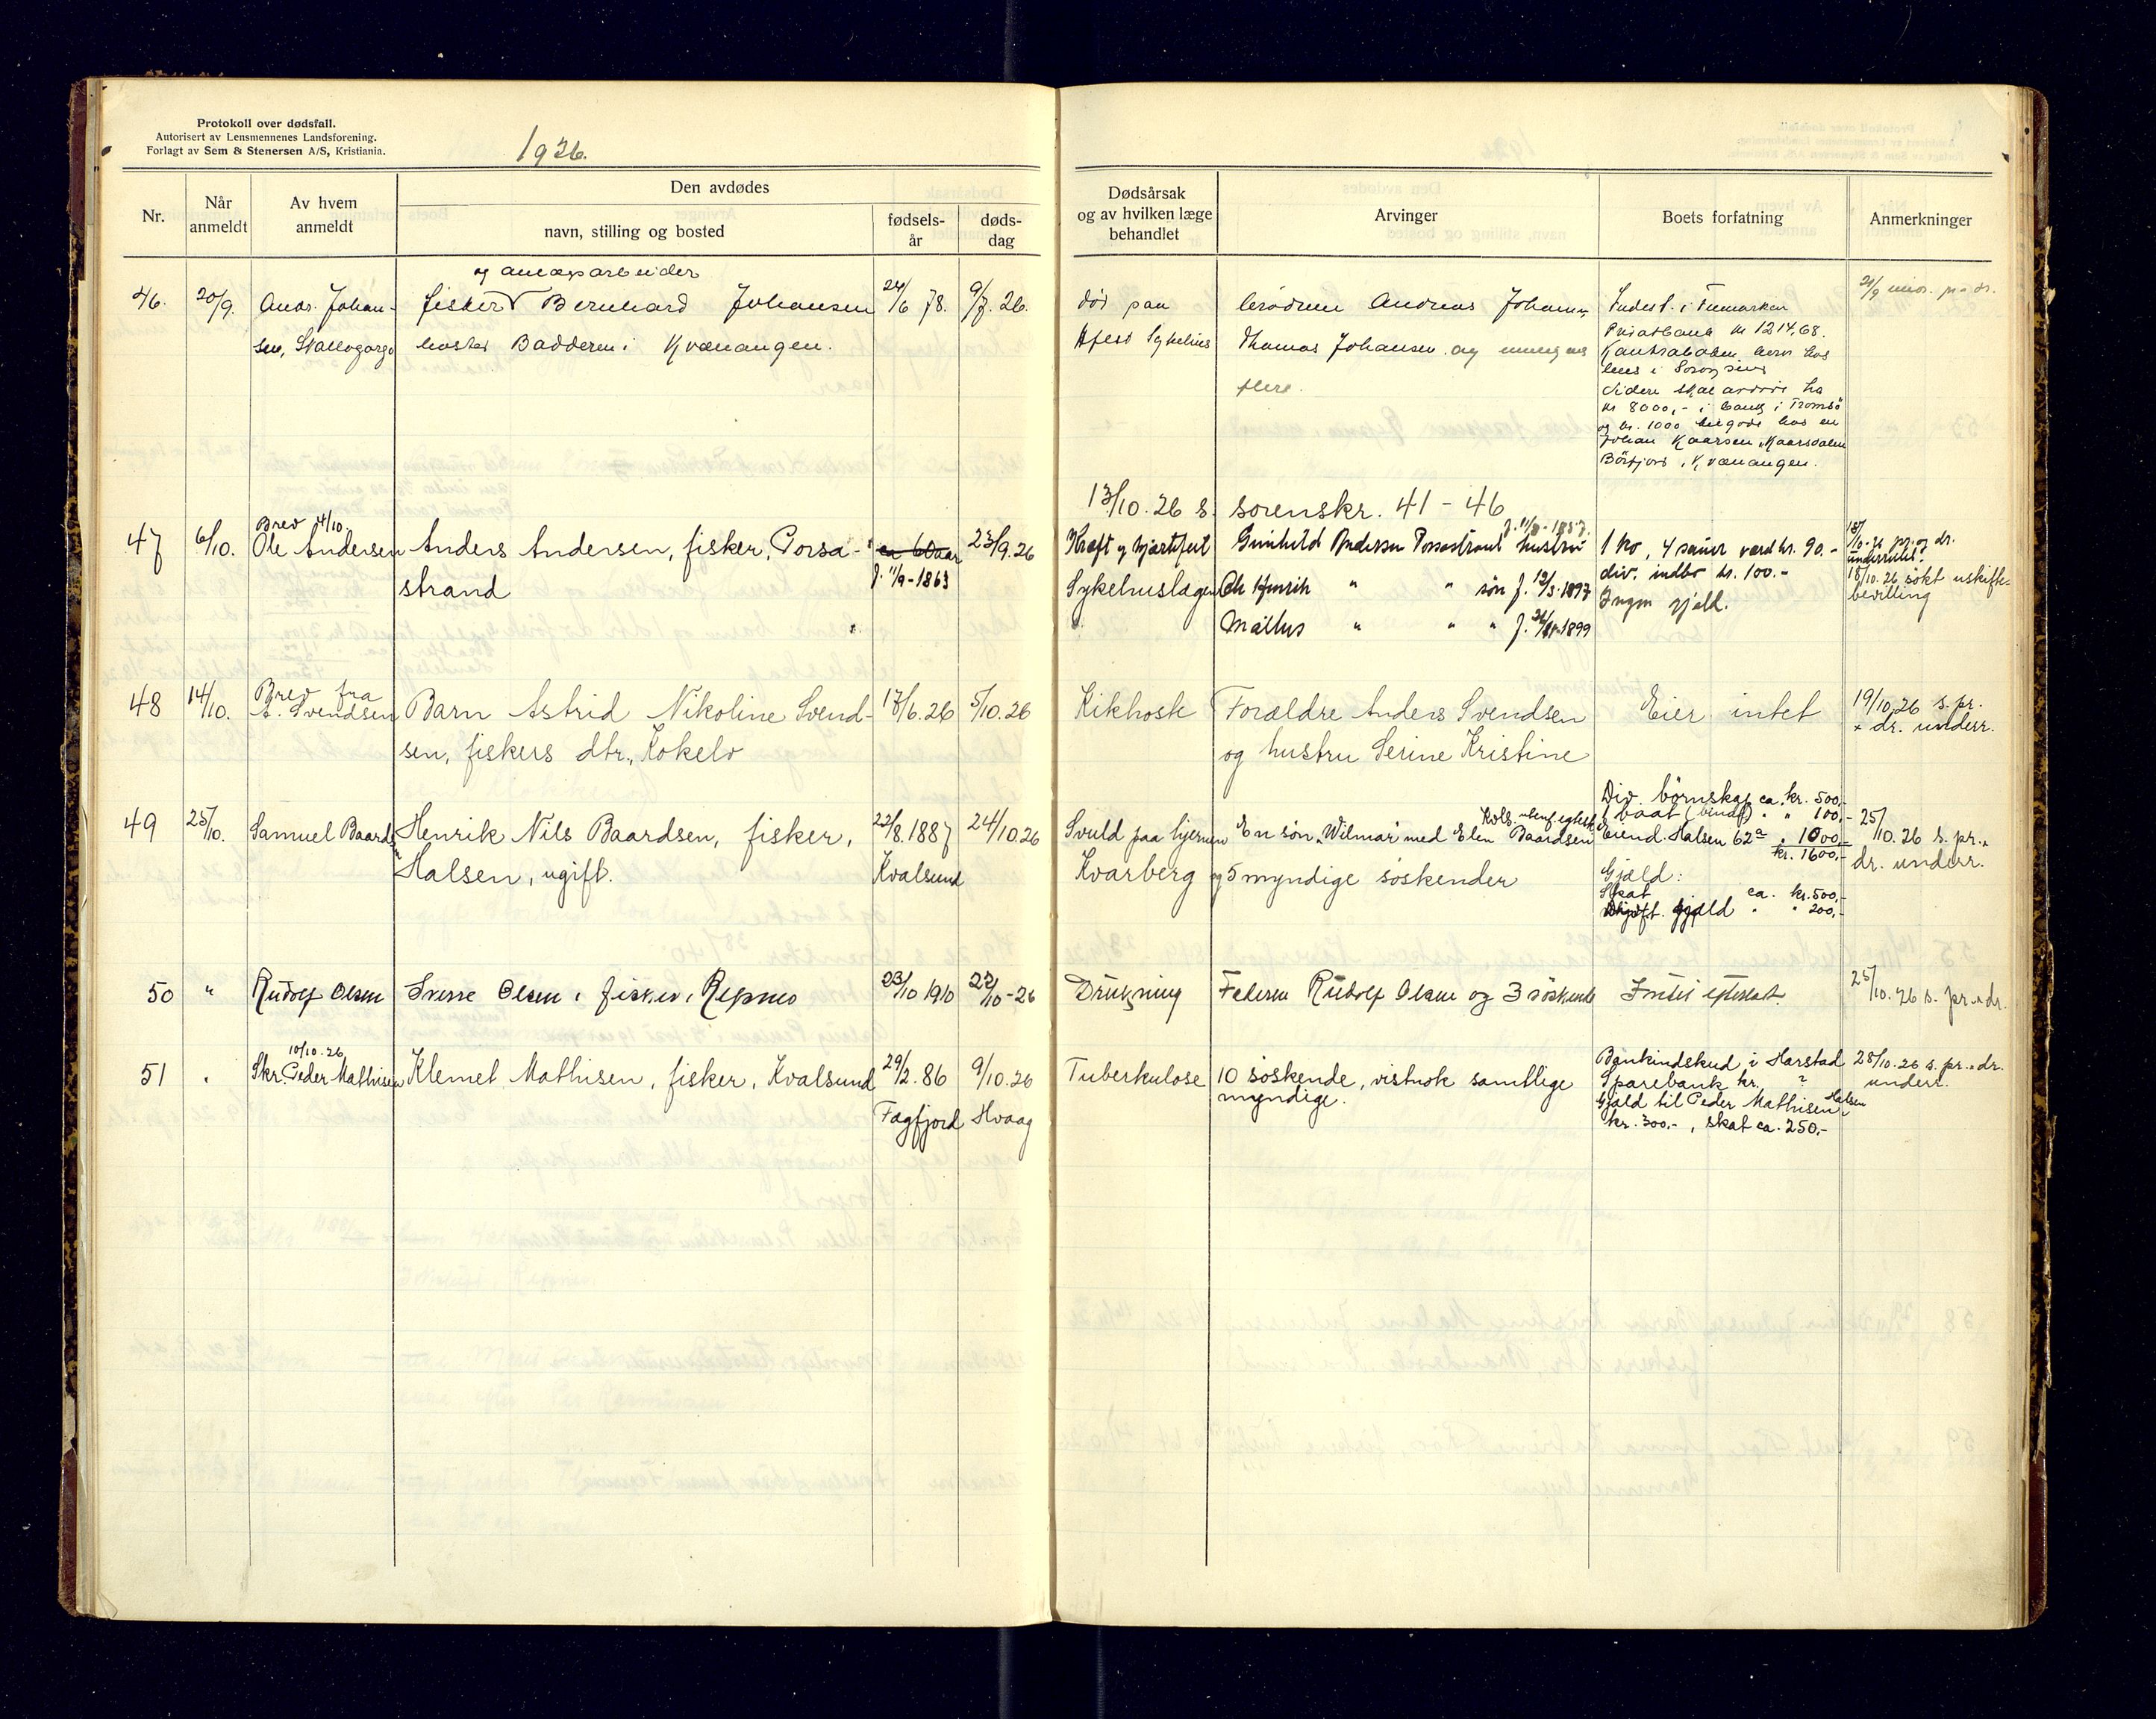 Protokoll over dødsfall.
Autorisert av Lensmennenes Landsforening.
Forlagt av Sem & Stenersen A/S, Kristiania.
1926.
Nr.
Når anmeldt
Av hvem anmeldt
Den avdødes
navn, stilling og bosted
fødsels-år
døds-dag
Dødsårsak og av hvilken læge behandlet
Arvinger
Boets forfatning
Anmerkninger
og anlægsarbeider
46. 20/9. Andr. Johan- fisker Bernhard Johansen 24/6 78. 9/7. 26.
sen, bosted Badderen i Kvænangen.
død paa brødrene Andreas Johansen
Sykehus Thomas Johansen og muligens
flere.
Indest. i Finmarken
Privatbank kr 1214,68.
Kontraboken bero hos
lens i Sørøysund
videre skal avdøde ha
kr 8000,- i bank i Tromsö
og kr. 1000 tilgode hos en
Johan Kaarsen, Kaarsdalen
Börfjord, Kvænangen.
13/10. 26 s. sorenskr. 41 - 46
Brev 4/10.
47 6/10. Ole Andersen Anders Andersen, fisker, Porsa- ca 60 aar 23/9.26
strand f. 11/9-1863
Kræft og hjertefeil Gunhild Andersen Porsastrand hustru
Sykehuslægen Ole Henrik " " søn f. 12/3.1897
" " " f. 1899
1 ko, 4 sauer værd kr. 90.-
div. indbo kr. 100.-
Ingen gjeld.
18/10-26 pr. og dr.
underrettet.
18/10.26 søkt uskifte-
bevilling
48 14/10. Brev fra
A. Svendsen Barn Astrid Nikoline Svend- 17/6.26 5/10.26
sen, fiskers dtr., Kokelv
Kikhoste Forældre Anders Svendsen Eier intet 19/10.26 s. pr.
og hustru Serine Kristine + dr. underr.
49 25/10. Samuel Baards Henrik Nils Baardsen, fisker, 22/8.1887 24/10.26
Halsen, ugift. Kvalsund
Svuld paa hjernen En søn "Wilmar" med Elen Baardsen
Kvarberg og 5 myndige søskender
Div. börnskap ca. kr. 500,-
1 baat " " 100,-
Eiend. Halsen 62a " 1000,-
kr. 1600,-
Gjæld:
Skat ca. kr. 500,-
gjæld " " 200,-
25/10.26 s. pr. "
dr. underr.
50 " Rudolf Olsen Sverre Olsen, fisker, Repnes 23/10 1910 22/10-26
Drukning Faderen Rudolf Olsen og 3 søskende Intet efterlatt 25/10.26 s. pr. " dr.
10/10.26
51 " Skr. Peder Mathisen Klemet Mathisen, fisker, Kvalsund 29/2.86 9/10.26
Fagfjord Hvaag
Tuberkulose 10 søskende, vistnok samtlige
myndige.
Bankindskud i Harstad
Sparebank kr. ?
Gjæld til Peder Mathisen, Halsen
kr. 300.-, skat ca. 250.-
28/10.26 s. pr. " dr.
underr.